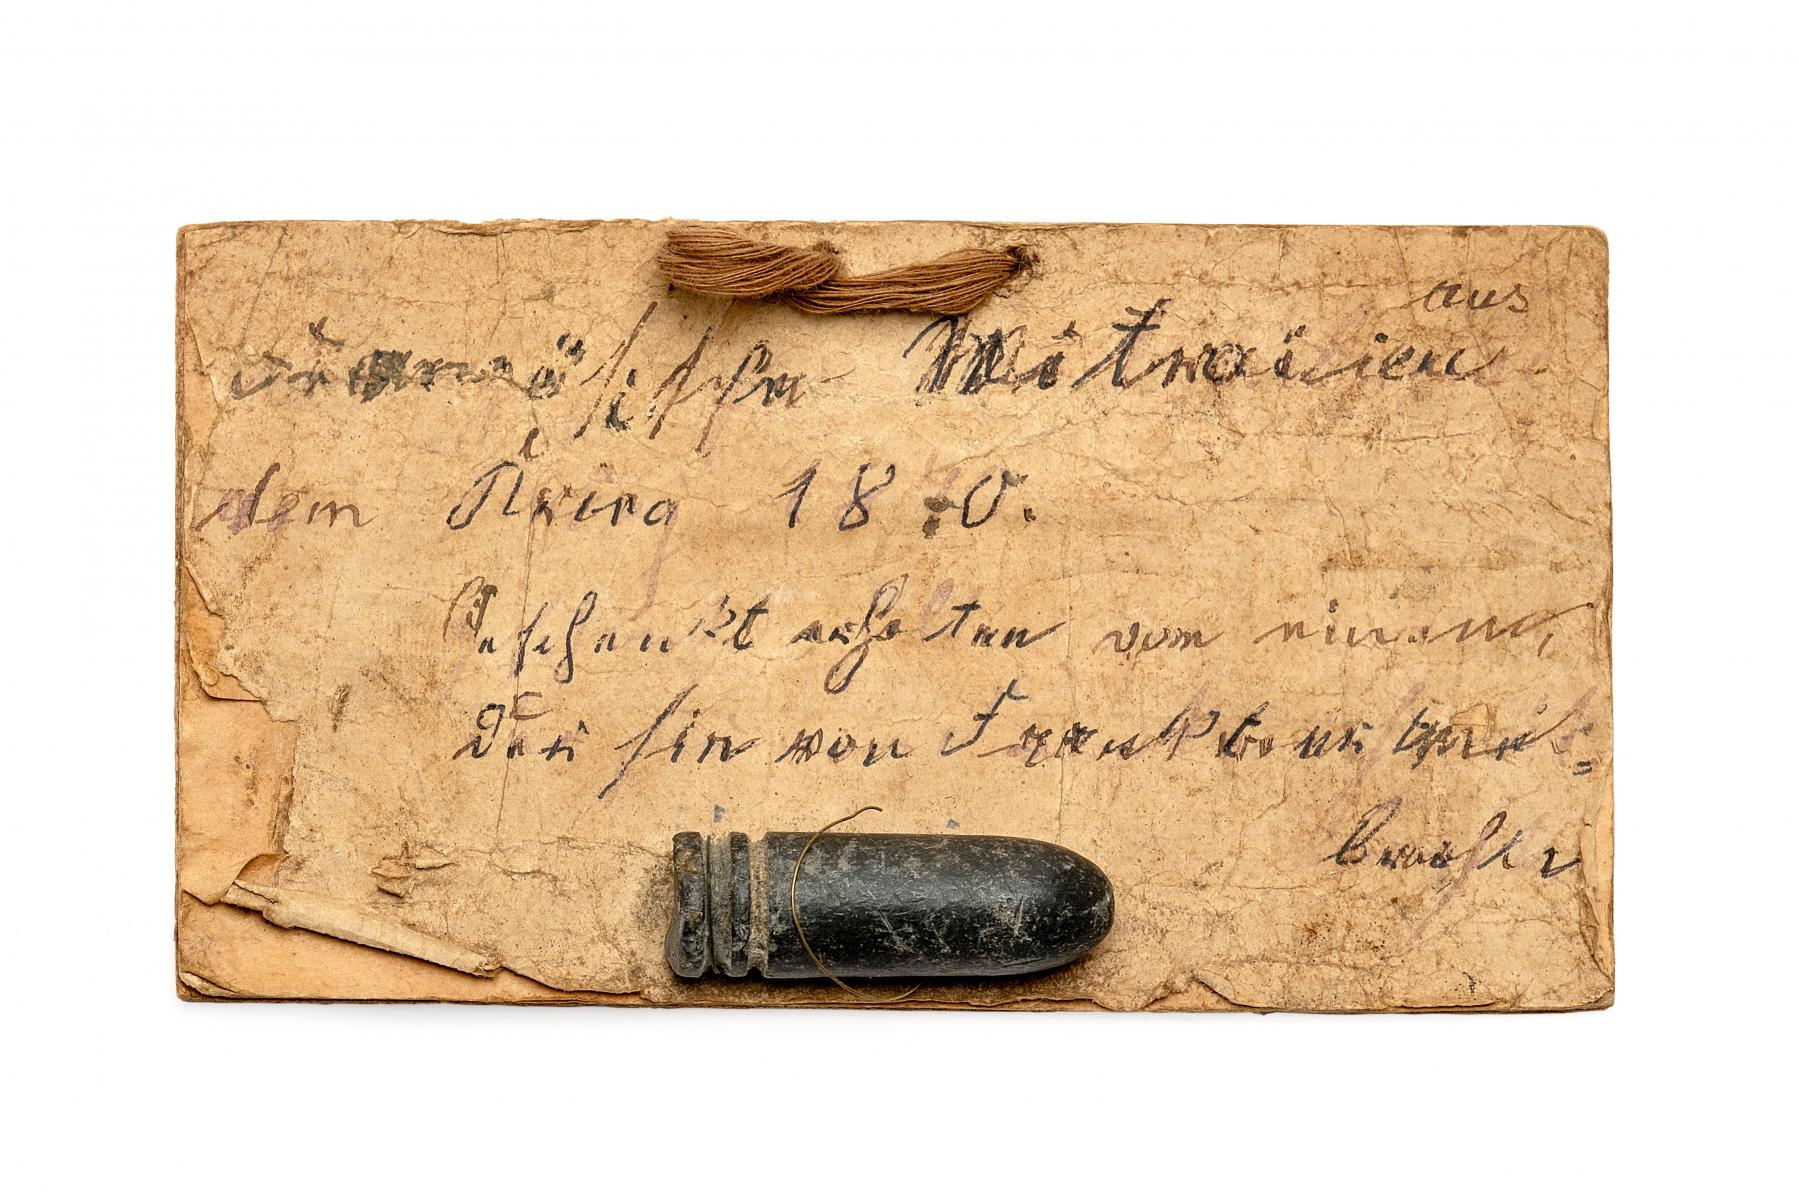 Französische Mitrailien aus
dem Krieg 1870.
Geschenkt erhalten vom einem,
der sie von Frankreich mit=
brachte